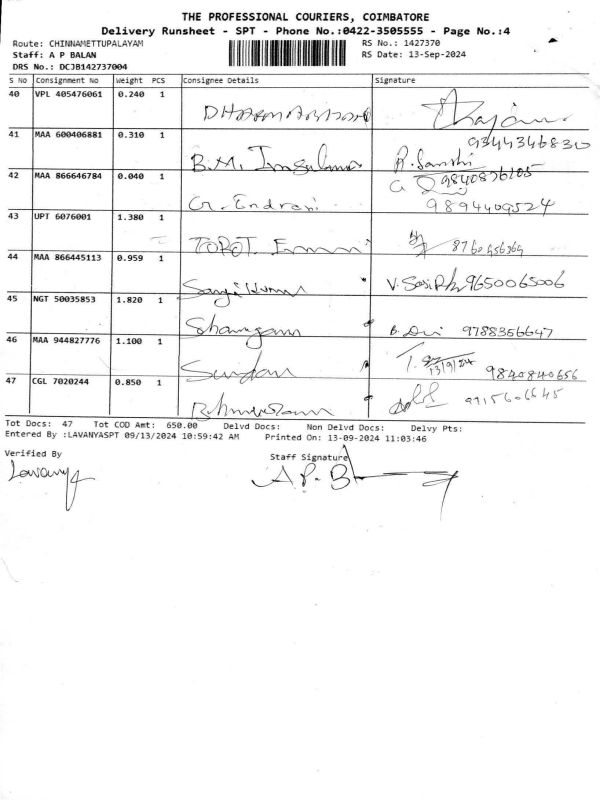 THE PROFESSIONAL COURIERS, COIMBATORE
Delivery Runsheet - SPT - Phone No.:0422-3505555 - Page No.:4
Route: CHINNAMETTUPALAYAM RS No.: 1427370
Staff: A P BALAN RS Date: 13-Sep-2024
DRS No.: DCJB142737004
S No Consignment No Weight PCS Consignee Details Signature
40 VPL 405476061 0.240 1
41 MAA 600406881 0.310 1 9344346830
B.M.
42 MAA 866646784 0.040 1 9840876105
G. 9894409524
43 UPT 6076001 1.380 1
44 MAA 866445113 0.959 1
V. 9650065006
45 NGT 50035853 1.820 1
B. 9788366647
46 MAA 944827776 1.100 1
T. 13/9/24 9840840656
47 CGL 7020244 0.850 1
9915606645
Tot Docs: 47 Tot COD Amt: 650.00 Delvd Docs: Non Delvd Docs: Delvy Pts:
Entered By :LAVANYASPT 09/13/2024 10:59:42 AM Printed On: 13-09-2024 11:03:46
Verified By Staff Signature
Lavanya A.P.B